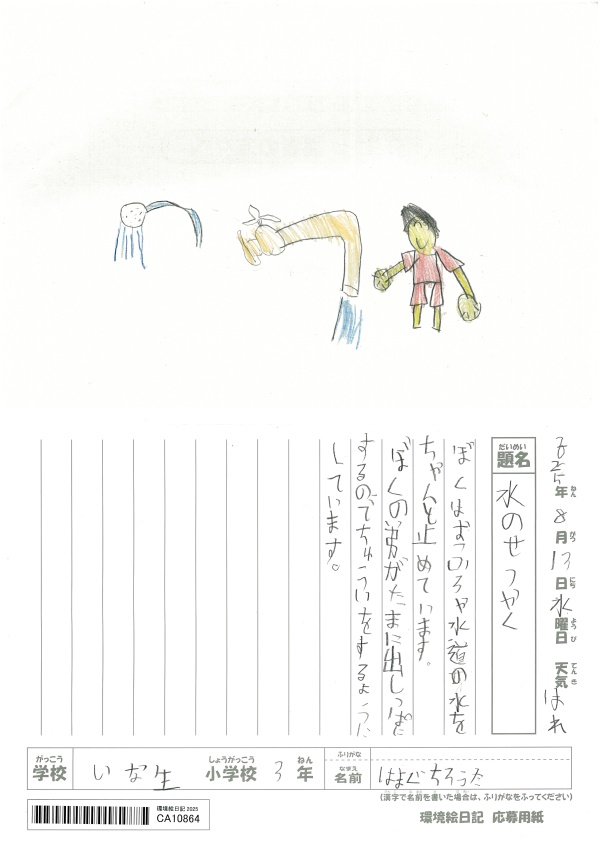 2025年8月13日水曜日 天気 はれ
ねん がつ にち ようび てんき
だいめい
題名
水のせつやく
ぼくはおふろや水道の水を
ちゃんと止めています。
ぼくの弟がたまに出しっぱに
するのでちゅういをするように
しています。
がっこう
学校
いな生
しょうがっこう
小学校
3
ねん
年
ふりがな
なまえ
名前
(漢字で名前を書いた場合は、ふりがなをふってください)
環境絵日記 2025
CA10864
環境絵日記 応募用紙